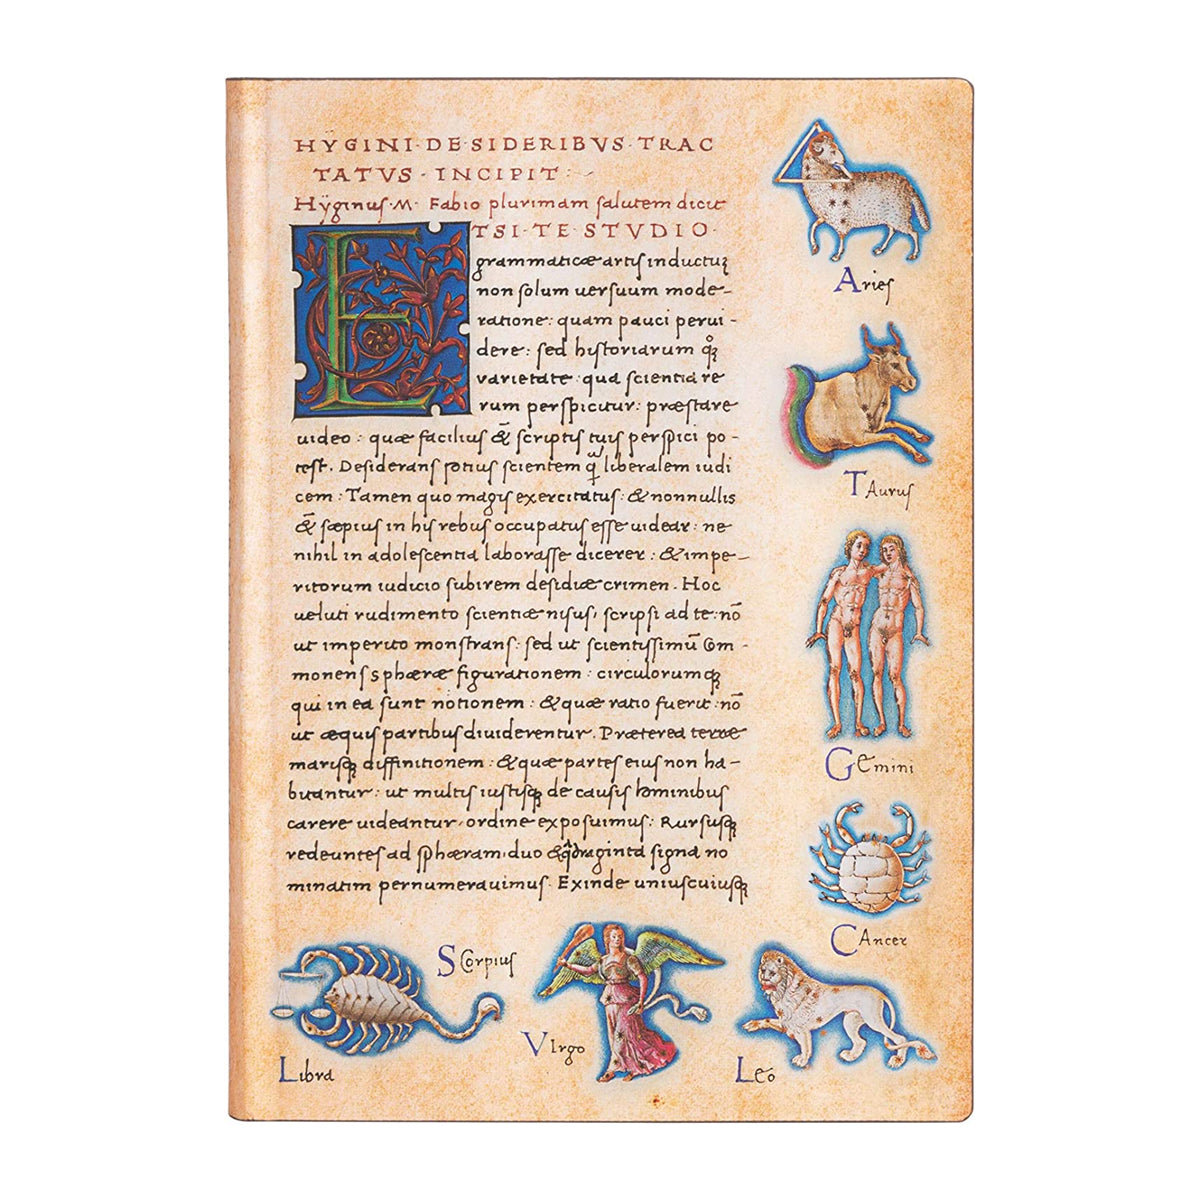 HŸGINI · DE · SIDERIBVS · TRAC
TATVS · INCIPIT :~
Hÿginus · M · Fabio plurimam ſalutem dicit
ETSI · TE · STVDIO ·
grammaticæ artiſ inductuꝫ
non ſolum uerſuum mode-
ratione: quam pauci perui-
dere: ſed hiſtoriarum qꝫ
uarietate: qua ſcientia re
rum perſpicitur: præſtare
uideo: quæ faciliuſ & ſcriptiſ tuiſ perſpici po-
test. Desideranſ potiuſ ſcientem q̃ liberalem iudi
cem: Tamen quo magiſ exercitatuſ: & nonnulliſ
& ſæpiuſ in hiſ rebuſ occupatuſ eſſe uidear: ne
nihil in adoleſcentia laboraſſe dicerer: & impe-
ritorum iudicio ſubirem deſidiæ crimen. Hoc
ueluti rudimento ſcientiæ niſuſ, ſcripſi ad te: nō
ut imperito monſtranſ: ſed ut ſcientiſſimū Com-
monenſ sphæræ figurationem: circulorumqꝫ
qui in ea ſunt notionem: & quæ ratio fuerit: nō
ut æquiſ partibuſ diuiderentur. Præterea terræ
mariſqꝫ diffinitionem: & quæ parteſ eiuſ non ha-
bitantur: ut multiſ iuſtiſqꝫ de cauſiſ hominibuſ
carere uideantur, ordine expoſuimuſ: Rurſuſqꝫ
redeunteſ ad ſphæram, duo & q̃draginta ſigna no
minatim pernumerauimuſ. Exinde uniuſcuiuſqꝫ
Arieſ
TAuruſ
GEmini
CAncer
LEo
VIrgo
SCorpiuſ
Libra